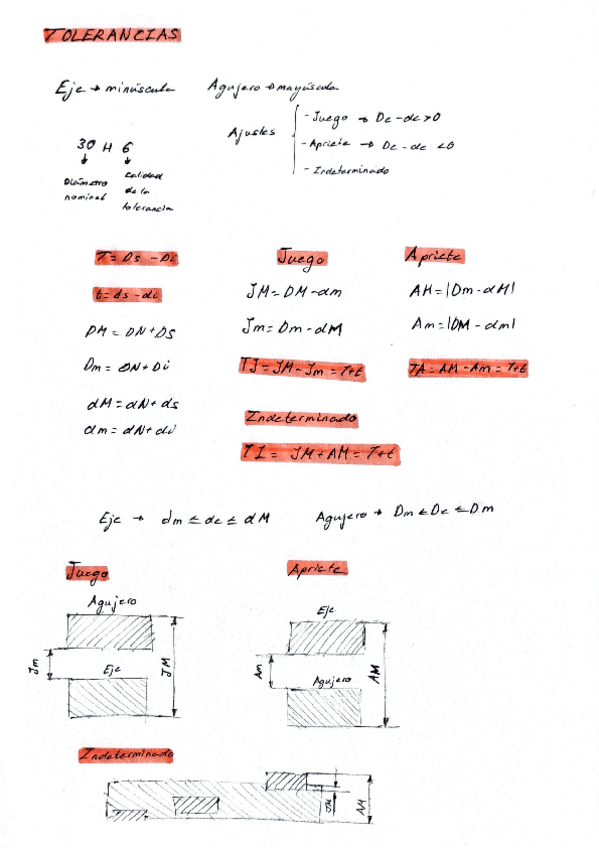 TOLERANCIAS
Eje → minúscula Agujero → mayúscula
Ajustes
- Juego → De - de > 0
- Apriete → De - de < 0
- Indeterminado
30 H 6
Diámetro nominal
calidad de la tolerancia
T = Ds - Di
t = ds - di
DM = DN + Ds
Dm = DN + Di
dM = dN + ds
dm = dN + di
Juego
JM = DM - dm
Jm = Dm - dM
TJ = JM - Jm = T+t
Indeterminado
TI = JM + AM = T+t
Apriete
AM = |Dm - dM|
Am = |DM - dm|
TA = AM - Am = T+t
Eje → dm ≤ de ≤ dM Agujero → Dm ≤ De ≤ Dm
Juego
Agujero
Jm
Eje
JM
Apriete
Eje
Am
Agujero
AM
Indeterminado
JM
AM